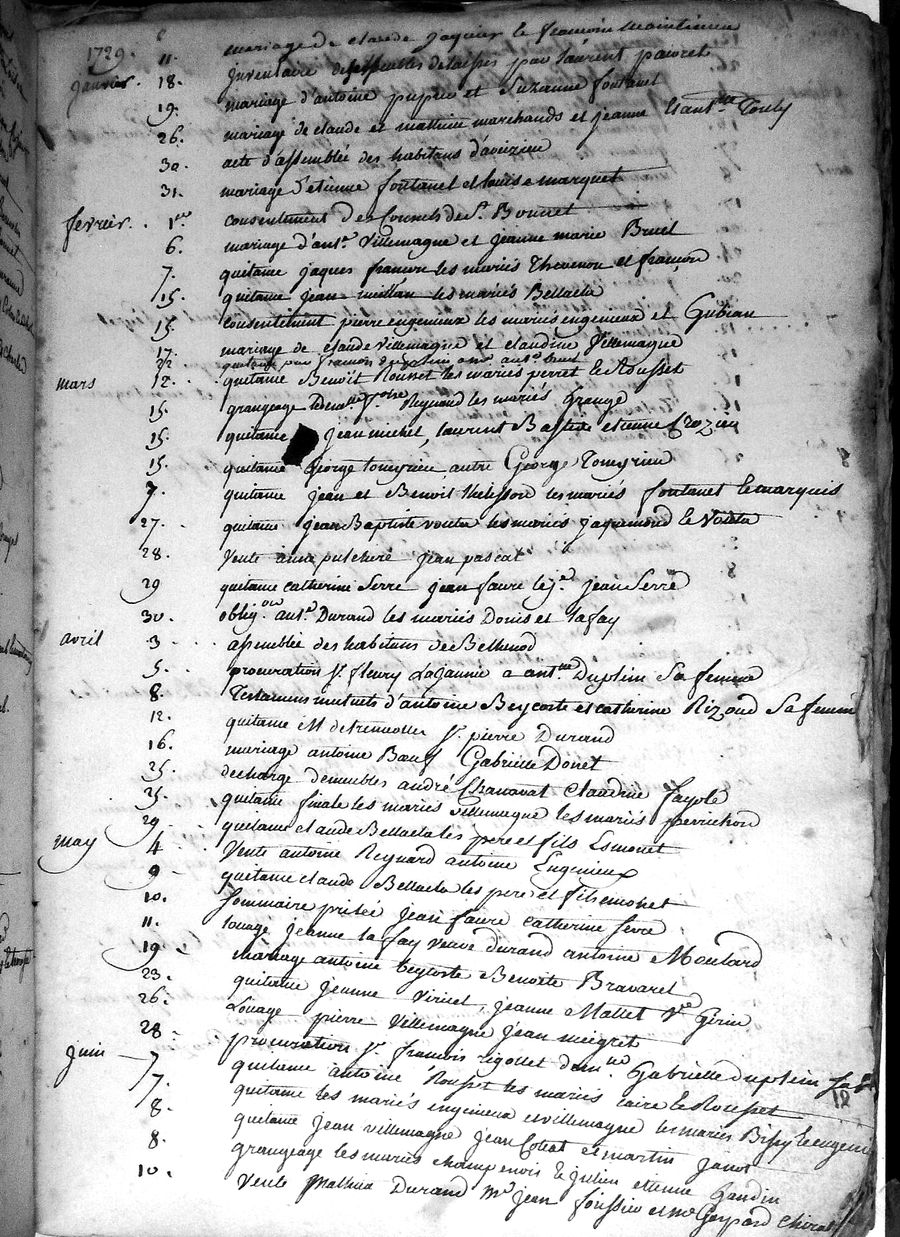 1729.
janvier. 11. mariage de claude jaquier le françoise
18. inventaire des meubles delaissés par laurent pauret
19. mariage d'antoine pupier et Suzanne fontanet
26. mariage de claude et mathieu marchands et jeanne
30. acte d'assemblée des habitans d'aveizieu
31. mariage d'etienne fontanet et louise marquet
fevrier. 1er consentement des Consuls de St. Bonnet
6. mariage d'ant.e Villemagne et jeanne marie Bruel
7. quitance jaques françon les mariés Thevenon et françon
15. quitance jean meillan les mariés Bellacla
15. Consentement pierre engenieux les mariés engenieux et Gubian
17. mariage de claude villemagne et claudine Villemagne
22 quitance
mars 12. quitance Benoit Rousset les mariés perret le Rousset
15. grangeage Reynaud les mariés Grange
15. quitance jean michel, laurent Bastide etienne Crozier
15. quitance George tomyrieu autre George Tomyrieu
7. quitance jean et Benoit Melisson les mariés fontanet le marquis
27. quitance jean Baptiste les mariés jaquemond le
28. Vente anne pulcherie jean pascal
29 quitance catherine Serre jean faure le je. jean Serre
30. oblig.on ant.e Durand les mariés Donis et lafay
avril 3 assemblée des habitans de Bellenod
5. procuration Sr. fleury Lajaunie a ant.tte Duplein Sa femme
8. Testamens mutuels d'antoine Beycoste et catherine Rizoud Sa femme
12. quitance M Sr. pierre Durand
16. mariage antoine Bœuf Gabrielle Donet
25. decharge de meubles andré Chanavat Claudine fayole
25. quitance finale les mariés villemagne les mariés perrichon
29. quitance claude Bellacla les pere et fils Esmonet
may 4. Vente antoine Reynard antoine Engenieux
9 quitance claude Bellacla les pere et fils emonet
10. Sommaire prisée jean faure catherine serre
11. louage jeanne la fay veuve durand antoine Moulard
19. mariage antoine beycoste Benoite Bravaret
23. quitance jeanne Viricel, jeanne Mallet Ve Gerin
26. Louage pierre Villemagne jean meigret
28 procuration Sr. francois rigollet dam.lle Gabrielle duplein sa
juin 7 quitance antoine Rousset les mariés caire le Rousset
12
7. quitance les mariés engenieux et villemagne les mariés Bissy
8. quitance jean villemagne jean Collat et martin janot
8. grangeage les mariés champenois le julien etienne Gaudin
10. Vente Mathieu Durand Me jean foussier et me Gaspard